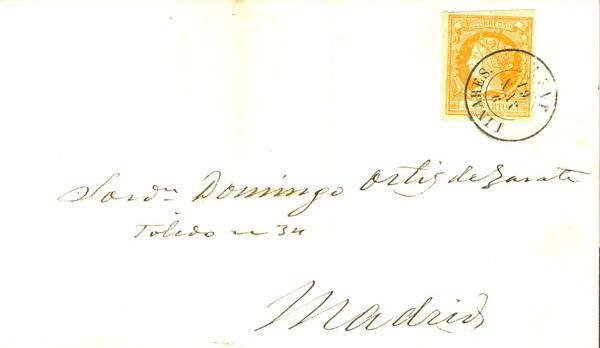 CORREOS
LINARES.
19
Domingo Ortiz de Zarate
Toledo nº 34
Madrid